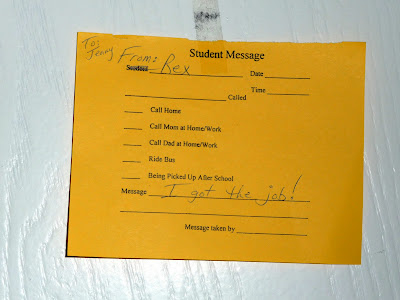 To: Jenny From: Rex
Student Message
Student
Date
Time
Called
Call Home
Call Mom at Home/Work
Call Dad at Home/Work
Ride Bus
Being Picked Up After School
Message I got the job!
Message taken by